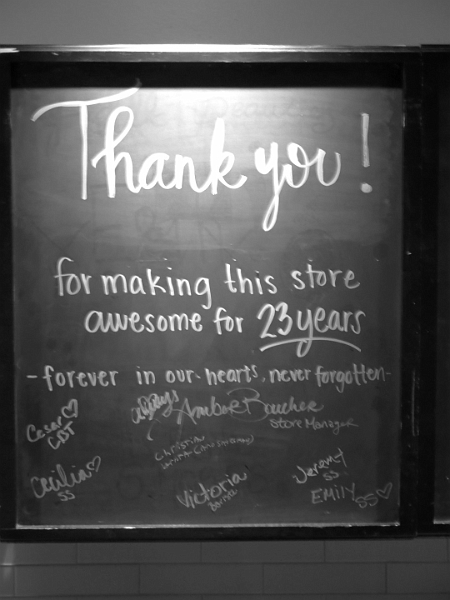 Thank you!
for making this store
awesome for 23 years
- forever in our hearts, never forgotten -
always Amber Boucher
Store Manager
Cesar
CBT
Christian
Cecilia
SS
Victoria
Barista
Jeremy
SS
EMILY SS